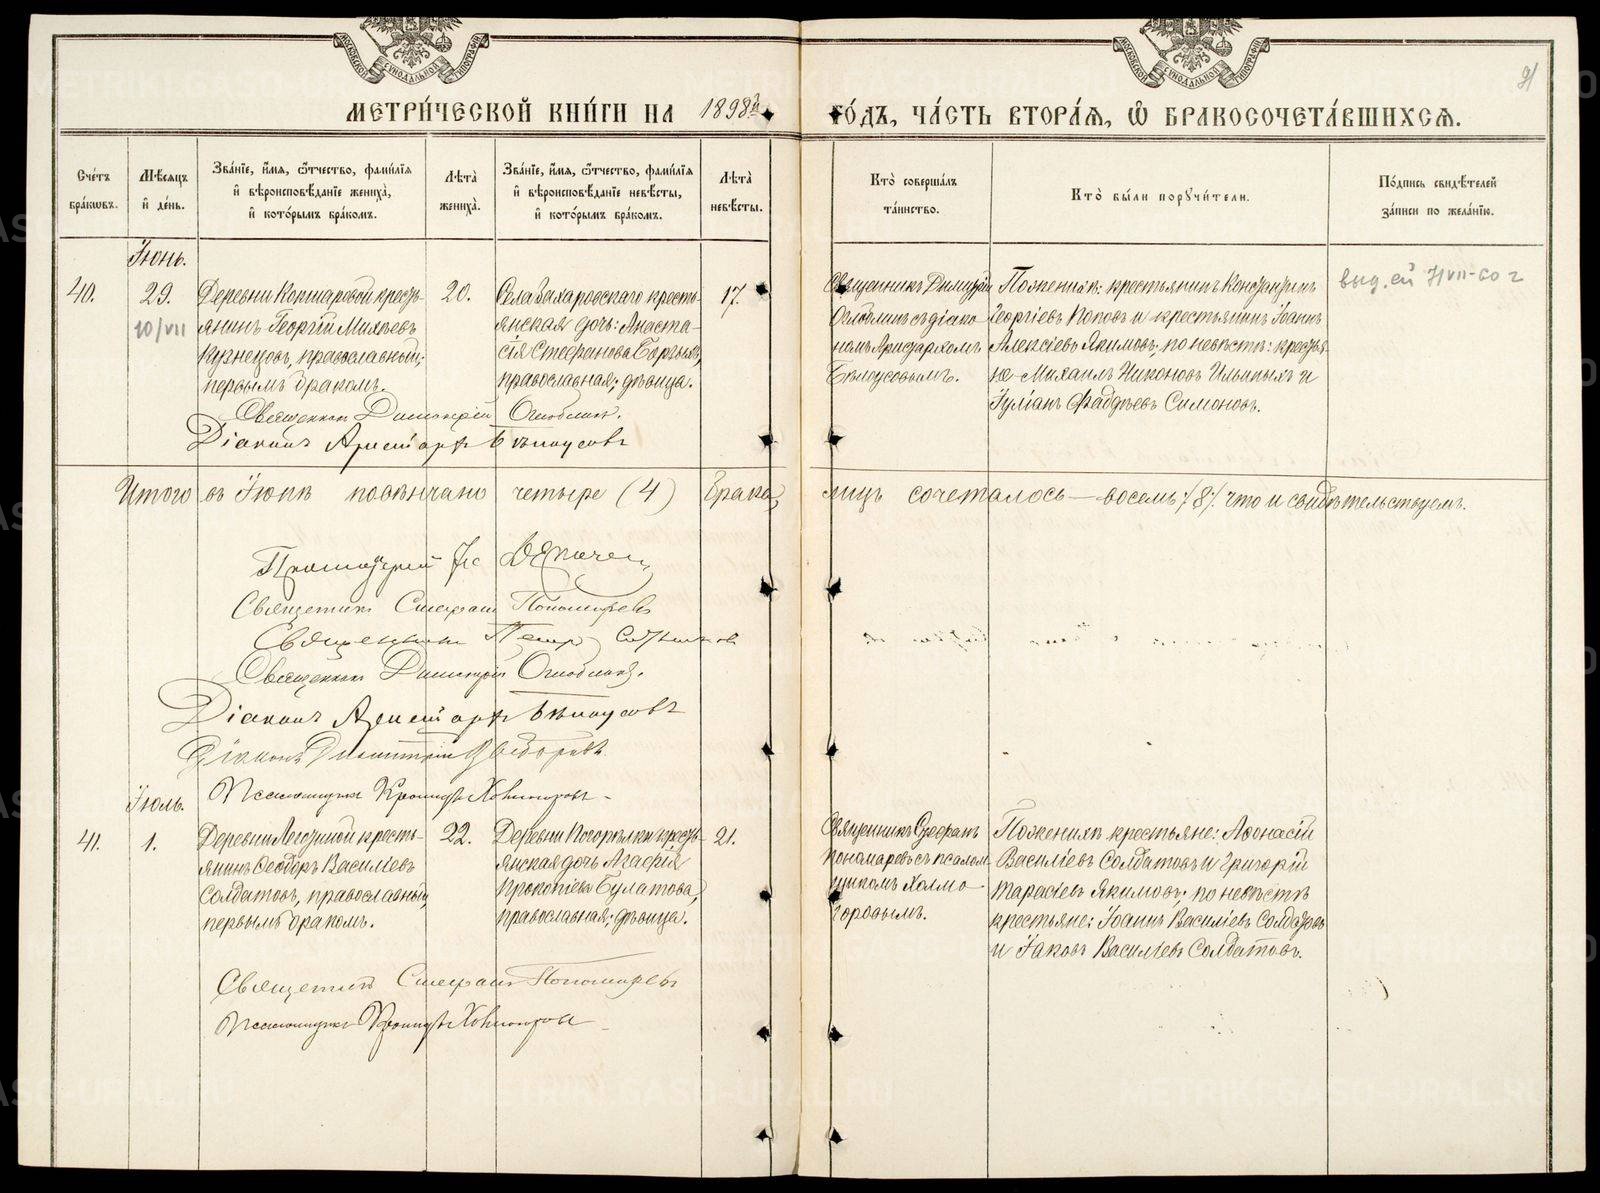 МОСКОВСКОЙ СѴНОДАЛЬНОЙ ТИПОГРАФІИ
МОСКОВСКОЙ СѴНОДАЛЬНОЙ ТИПОГРАФІИ
МЕТРИ́ЧЕСКОЙ КНИ́ГИ НА 1898й
ГО́ДЪ, ЧА́СТЬ ВТОРА́Ѧ, Ѽ БРАКОСОЧЕТА́ВШИХСѦ.
Сче́тъ
бра́кѡвъ.
Мѣ́сяцъ
и҆ де́нь.
Зва́нїе, и҆́мѧ, ѻ҆́тчество, фами́лїѧ
и҆ вѣроисповѣ́данїе жениха̀,
и҆ кото́рымъ бра́комъ.
Лѣ̀та̀
жениха̀.
Зва́нїе, и҆́мѧ, ѻ҆́тчество, фами́лїѧ
и҆ вѣроисповѣ́данїе невѣ́сты,
и҆ кото́рымъ бра́комъ.
Лѣ̀та̀
невѣ́сты.
Кто̀ соверша́лъ
та́инство.
Кто̀ бы́ли порꙋчи́тели.
По́дпись свидѣ́телей
за́писи по жела́нїю.
Іюнь.
40.
29.
10/VII
Деревни Кокшаровой кресть-
янинъ Георгій Михѣевъ
Кузнецовъ, православный;
первымъ бракомъ.
20.
Села Захаровскаго кресть-
янская дочь: Анаста-
сія Стефанова
православная; дѣвица.
17.
Священникъ Димитрій
Оглоблинъ съ діако-
номъ Аристархомъ
Бѣлоусовымъ.
По женихѣ: крестьянинъ Константинъ
Георгіевъ Поповъ и крестьянинъ Іоаннъ
Алексіевъ Якимовъ; по невѣстѣ: крестья-
не Михаилъ Никоновъ Ильиныхъ и
Іуліанъ Фаддѣевъ Симоновъ.
выд. ей 7/VII-60 г
Священникъ Димитрій Оглоблинъ.
Діаконъ Аристархъ Бѣлоусовъ
Итого въ Іюнѣ повѣнчано четыре (4) брака,
лицъ сочеталось — восемь /8/. что и свидѣтельствуемъ.
Протоіерей
Священникъ Стефанъ Пономаревъ
Священникъ Петръ
Священникъ Димитрій Оглоблинъ.
Діаконъ Аристархъ Бѣлоусовъ
Діаконъ Димитрій
Псаломщикъ Холмогоровъ
Іюль.
41.
1.
Деревни Лягушиной кресть-
янинъ Ѳеодоръ Василіевъ
Солдатовъ, православный,
первымъ бракомъ.
22.
Деревни Погорѣлки кресть-
янская дочь Агафія
Прокопіева Булатова,
православная; дѣвица.
21.
Священникъ Стефанъ
Пономаревъ съ псалом-
щикомъ Холмо-
горовымъ.
По женихѣ крестьяне: Аѳонасій
Василіевъ Солдатовъ и Григорій
Тарасіевъ Якимовъ; по невѣстѣ
крестьяне: Іоаннъ Василіевъ Солдатовъ
и Іаковъ Василіевъ Солдатовъ.
Священникъ Стефанъ Пономаревъ
Псаломщикъ Холмогоровъ
METRIKI.GASO-URAL.RU